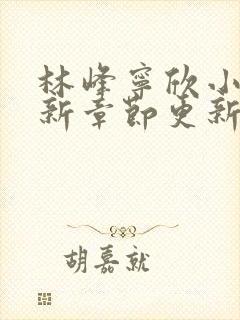 林峰寧欣小
新章節更新
胡嘉就